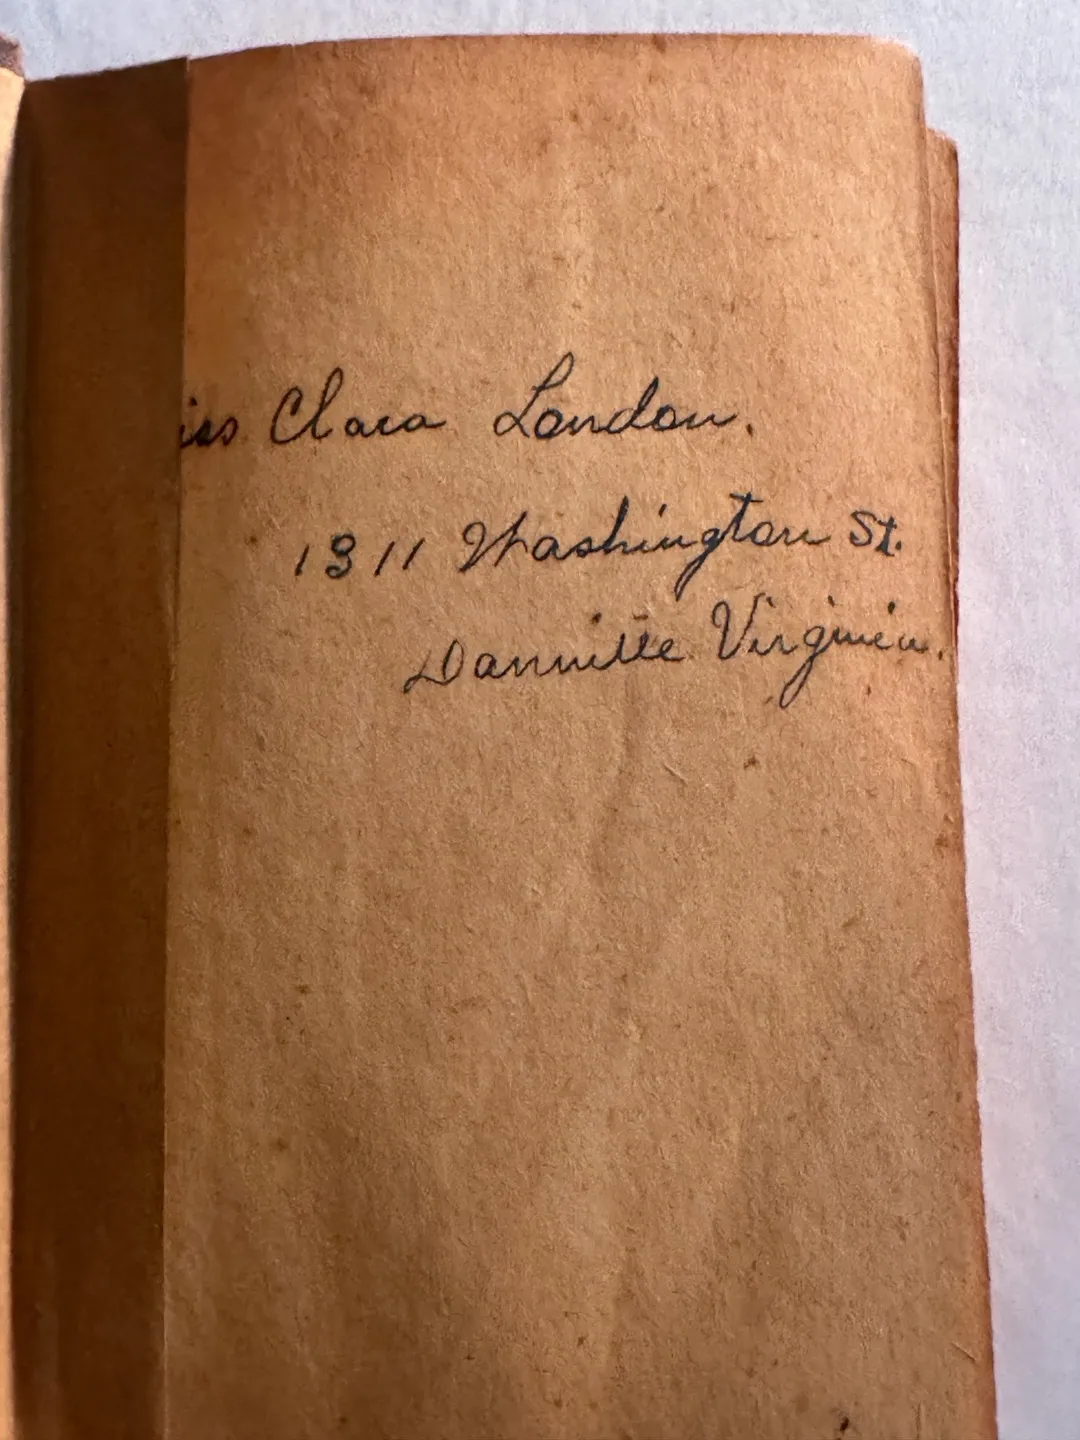 iss Clara London.
1311 Washington St.
Danville Virginia.